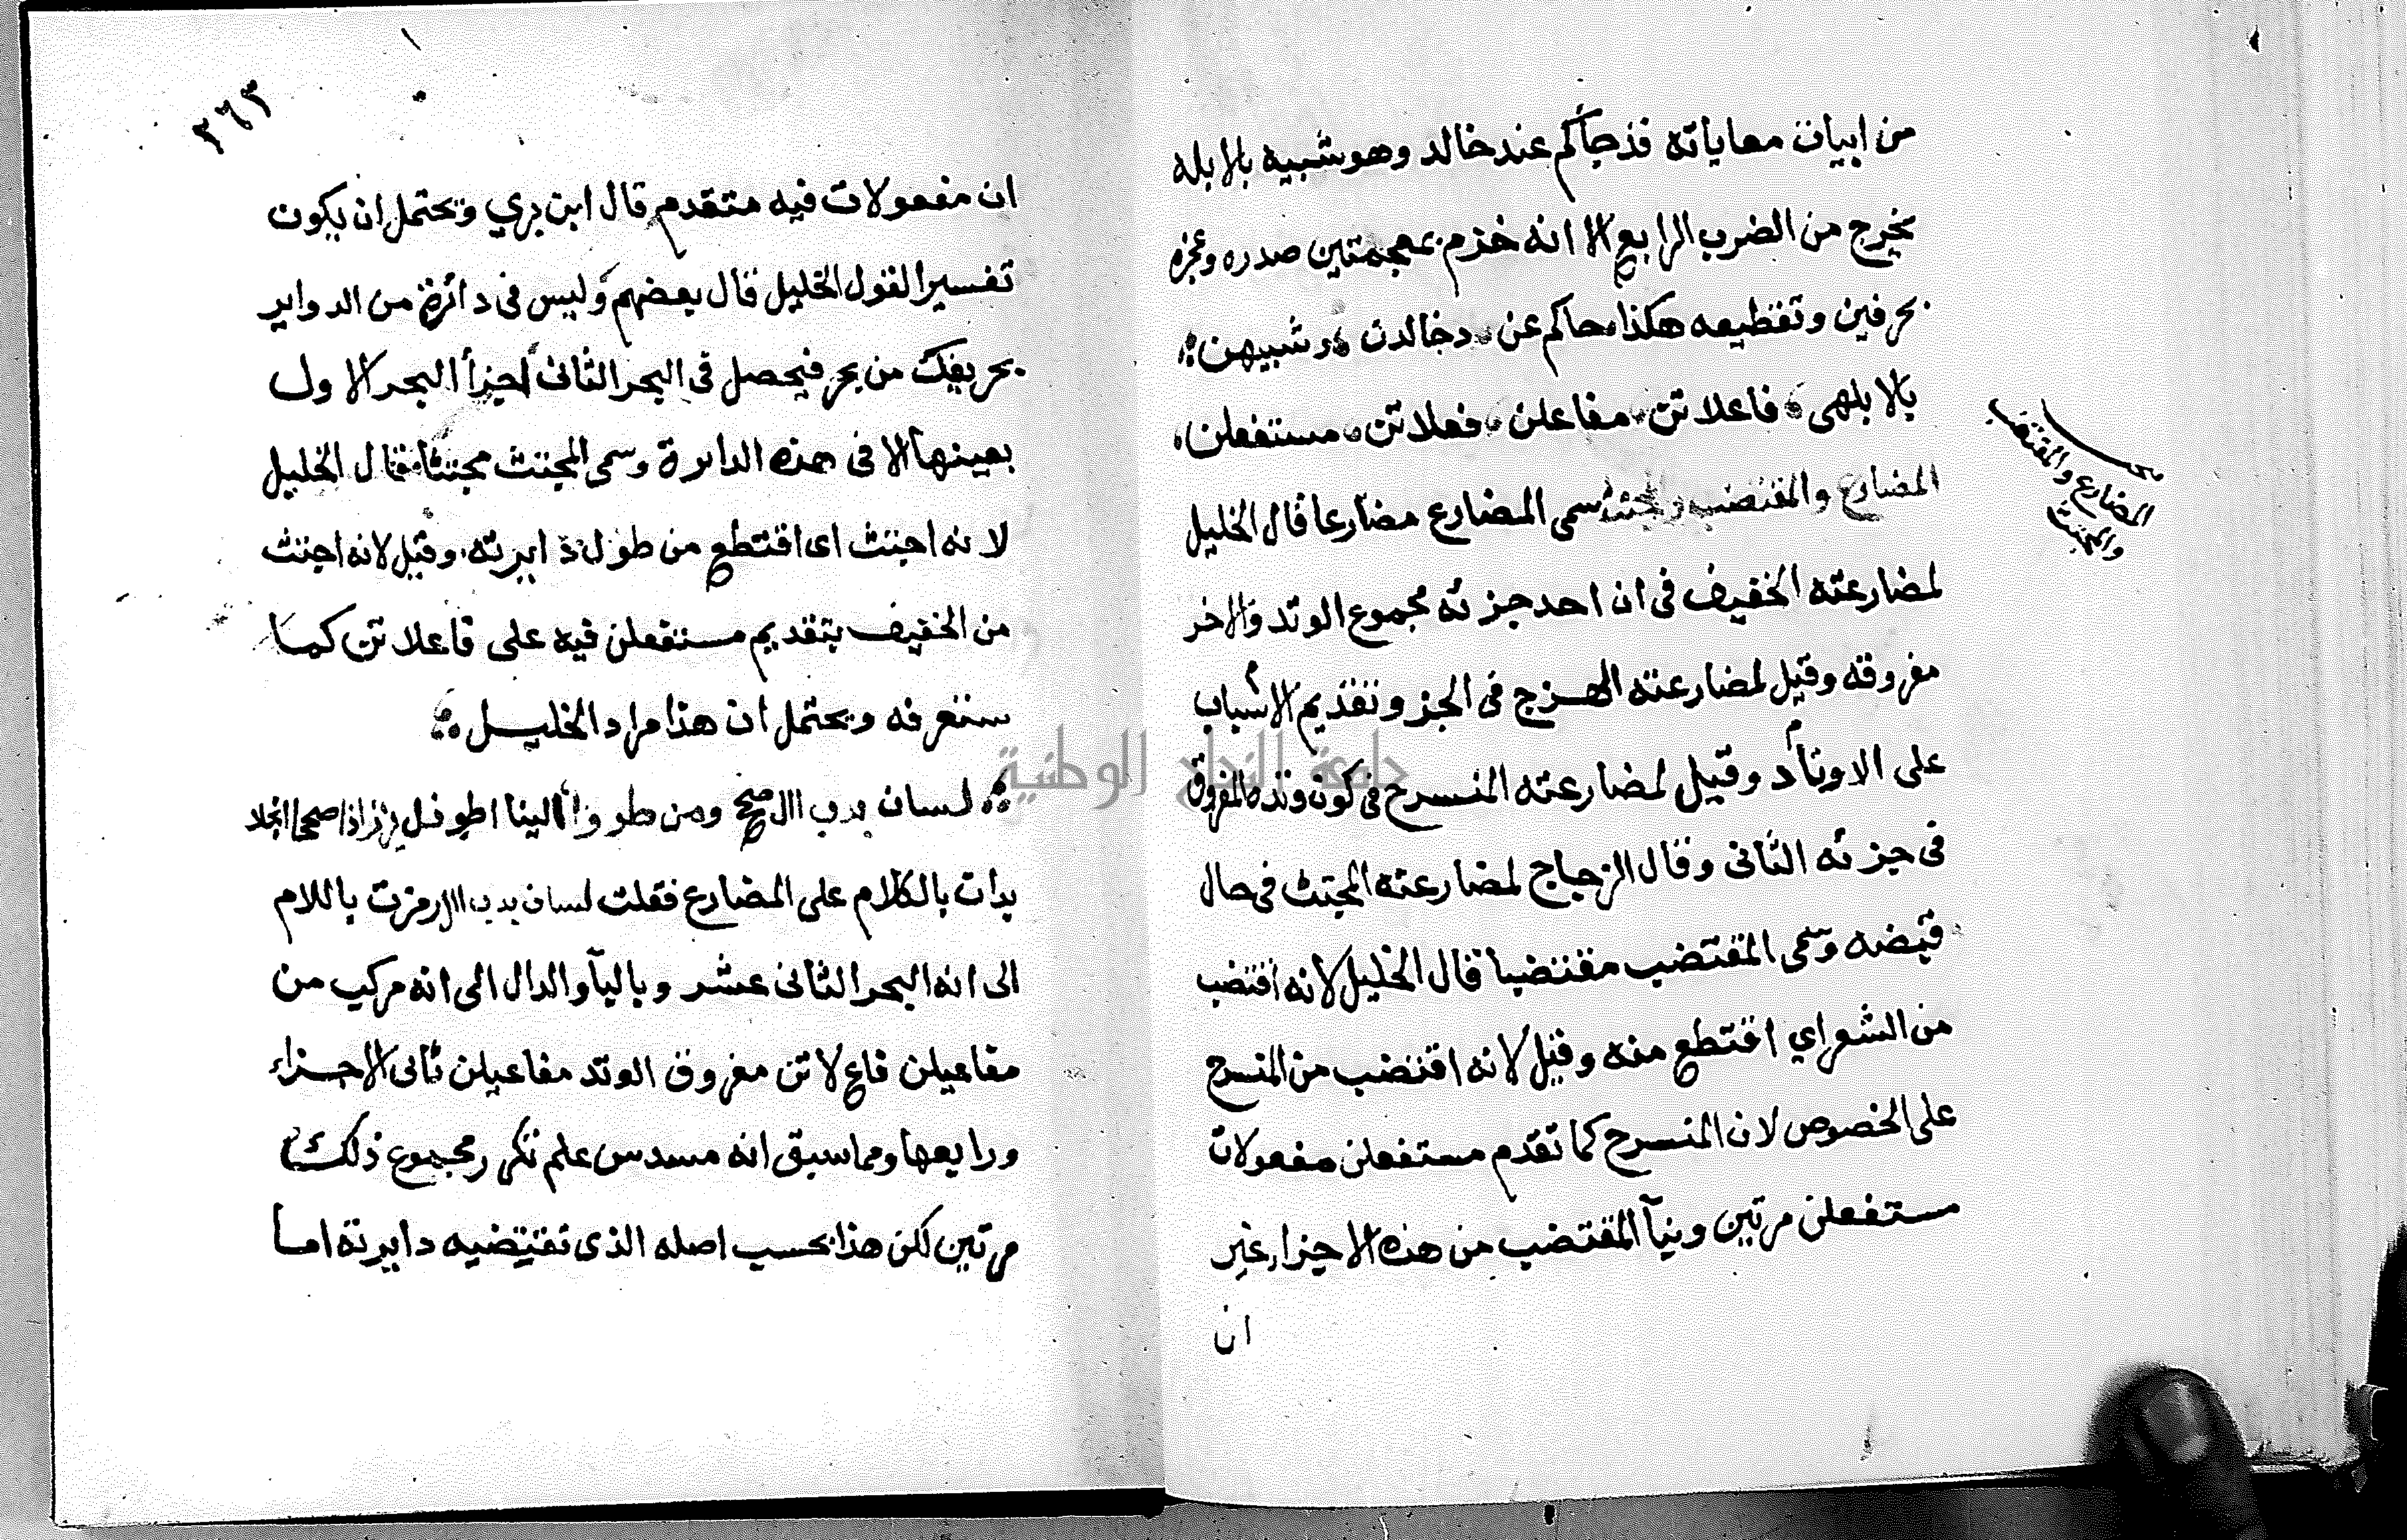 من ابيات معاياته قد جاكم عند خالد وهو شبيه بالابله
يخرج من الضرب الرابع الا انه خزم بمعجمتين صدره وعجزه
بحرفين وتقطيعه هكذا حاكم عن دخالدن شبيهن
بالابلهى فاعلاتن مفاعلن فعلاتن مستفعلن
المضارع والمقتضب والمجتث سمى المضارع مضارعا قال الخليل
لمضارعته الخفيف فى ان احد جزئه مجموع الوتد والاخر
مفروقه وقيل لمضارعته الهزج فى الجز وتقديم الاسباب
على الاوتاد وقيل لمضارعته المنسرح فى كون وتده المفروق
فى جزئه الثانى وقال الزجاج لمضارعته المجتث فى حال
قبضه وسمى المقتضب مقتضبا قال الخليل لانه اقتضب
من الشعر اي اقتطع منه وقيل لانه اقتضب من المنسرح
على الخصوص لان المنسرح كما تقدم مستفعلن مفعولات
مستفعلن مرتين وبنآ المقتضب من هذه الاجزا غير
ان
بحر
المضارع والمقتضب
والمجتث
٢٦٣
ان مفعولات فيه متقدم قال ابن بري ويحتمل ان يكون
تفسيرا لقول الخليل قال بعضهم وليس فى دائرة من الدواير
بحر يفك من بحر فيحصل فى البحر الثانى اجزأ البحر الاول
بعينها الا فى هذه الدايرة وسمى المجتث مجتثا قال الخليل
لانه اجتث اى اقتطع من طول دايرته وقيل لانه اجتث
من الخفيف بتقديم مستفعلن فيه على فاعلاتن كما
ستعرفه ويحتمل ان هذا مراد الخليل
لسان يدب ومن الينا
بدات بالكلام على المضارع فقلت لسان يدب رمزت باللام
الى انه البحر الثانى عشر وباليآ والدال الى انه مركب من
مفاعيلن فاع لاتن مفروق الوتد مفاعيلن ثانى الاجزاء
ورابعها ومما سبق انه مسدس علم تكرر مجموع ذلك
مرتين لكن هذا بحسب اصله الذى تقتضيه دايرته اما